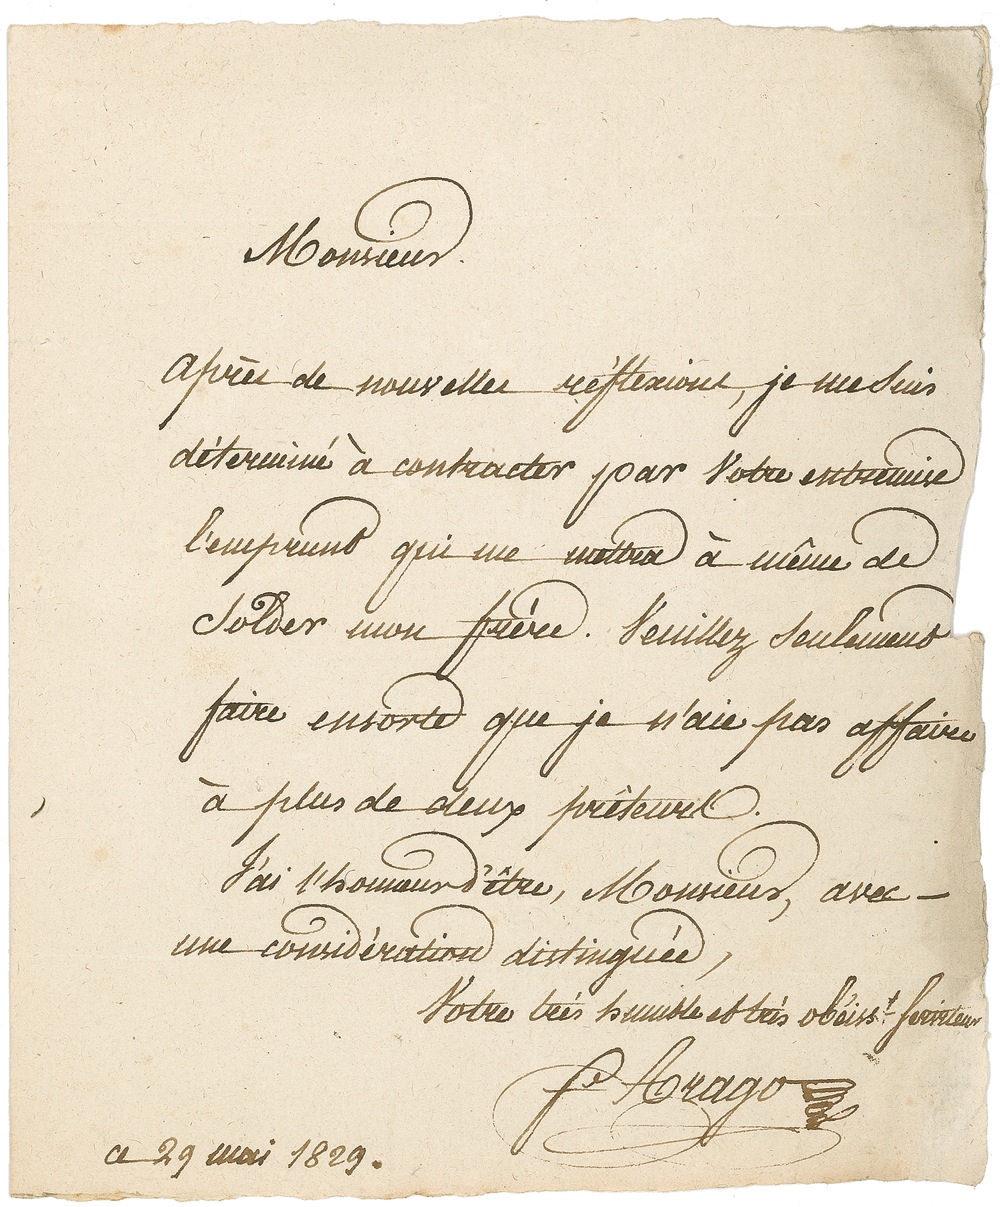 Monsieur.
après de nouvelles réflexions, je me suis
déterminé à contracter par Votre entremise
l'emprunt qui me mettra à même de
Solder mon frère. Veuillez seulement
faire ensorte que je n'aie pas affaire
à plus de deux prêteurs.
J'ai l'honneur d'être, Monsieur, avec —
une considération distinguée,
Votre très humble et très obéiss.t serviteur
fs Arago
ce 29 mai 1829.